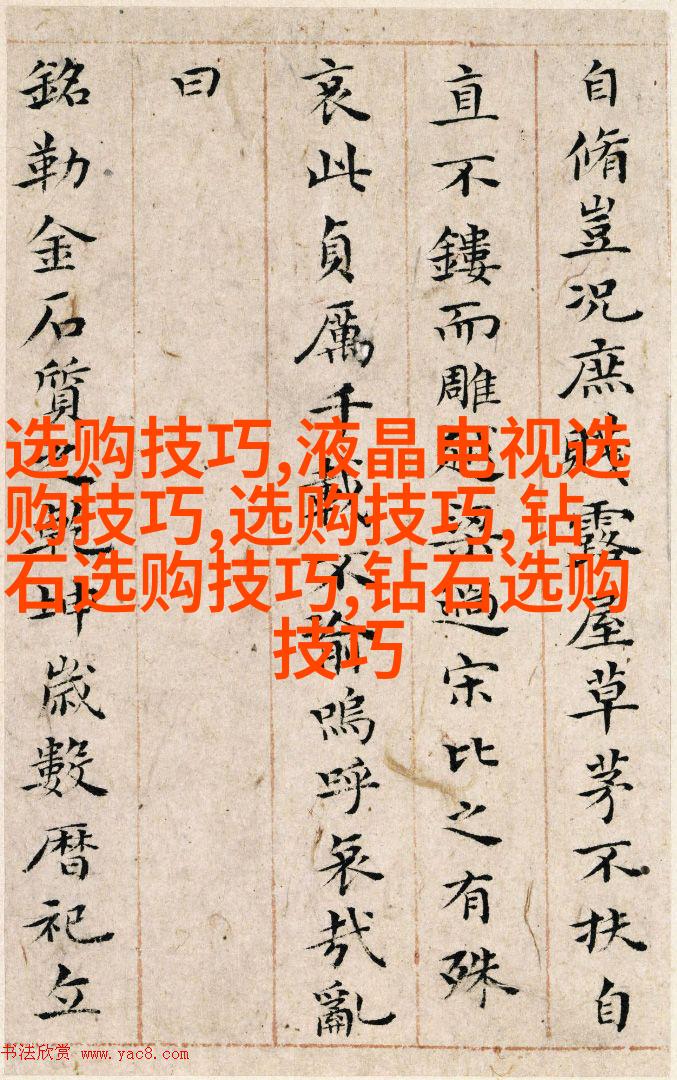 自脩豈況庶賤露屋草茅不扶自
直不鏤而雕越梁過宋比之有殊
哀此貞厲千載不渝嗚呼哀哉亂
曰
銘勒金石質之乾坤歲數暦祀立
选购技巧,液晶电视选
购技巧,选购技巧,钻
石选购技巧,钻石选购
技巧
书法欣赏 www.yac8.com